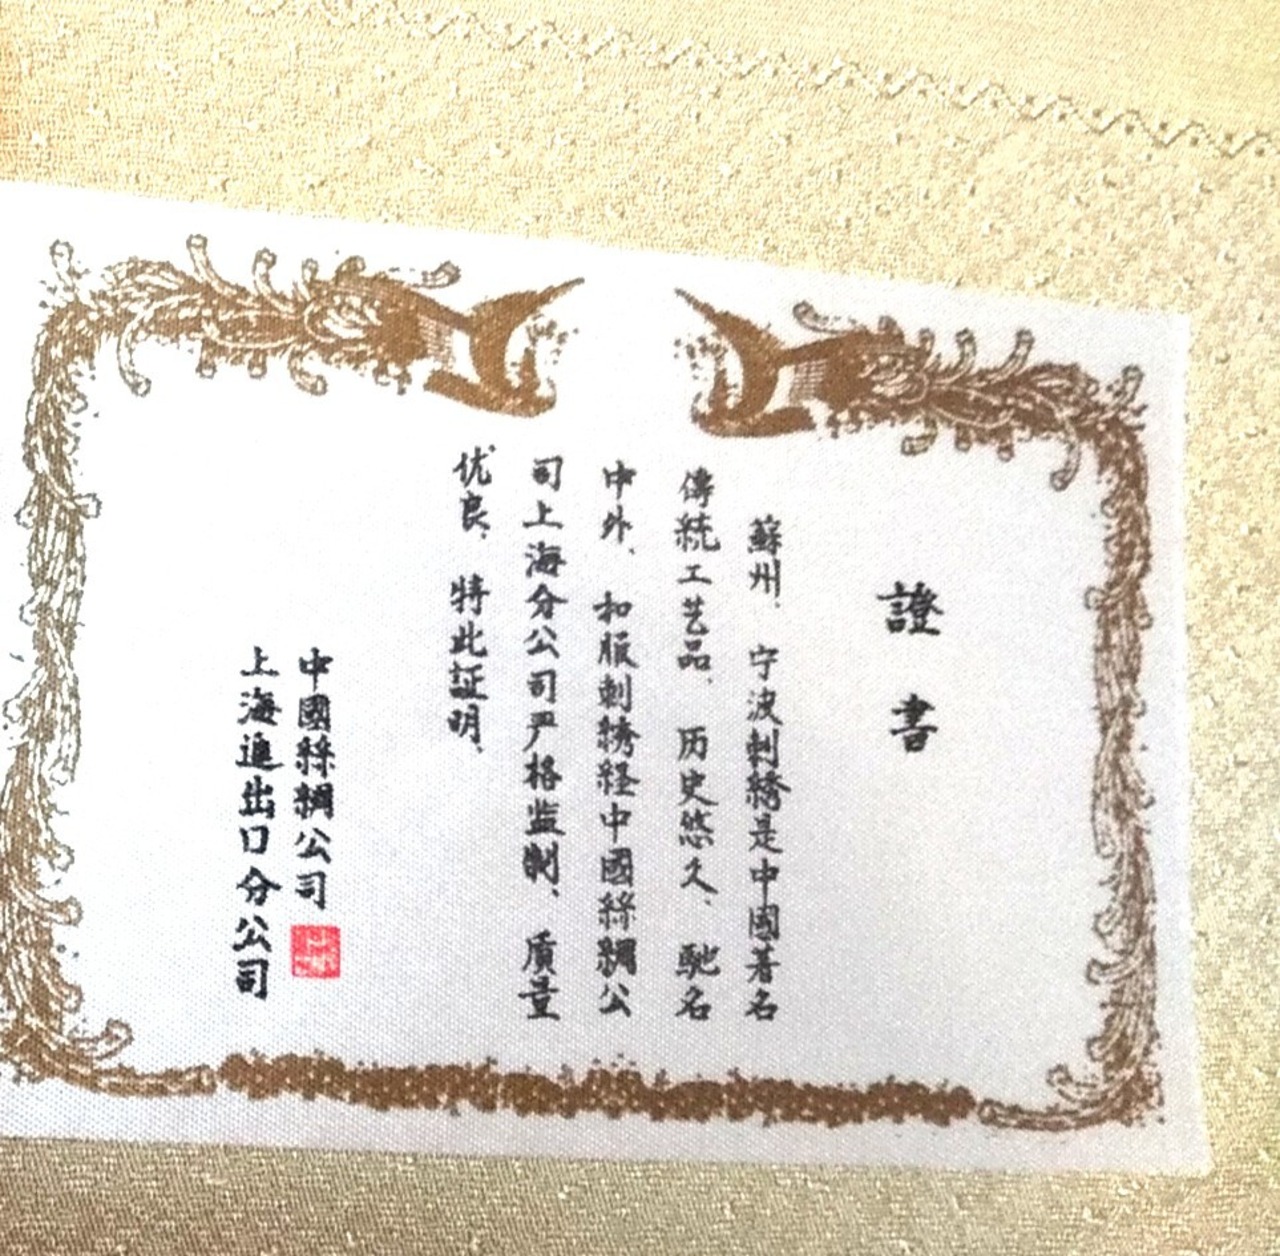 證書
蘇州、宁波刺繡是中國著名
傳統工艺品、历史悠久、馳名
中外、和服刺绣経中國絲綢公
司上海分公司严格监制、质量
优良、特此証明、
中國絲綢公司
上海進出口分公司